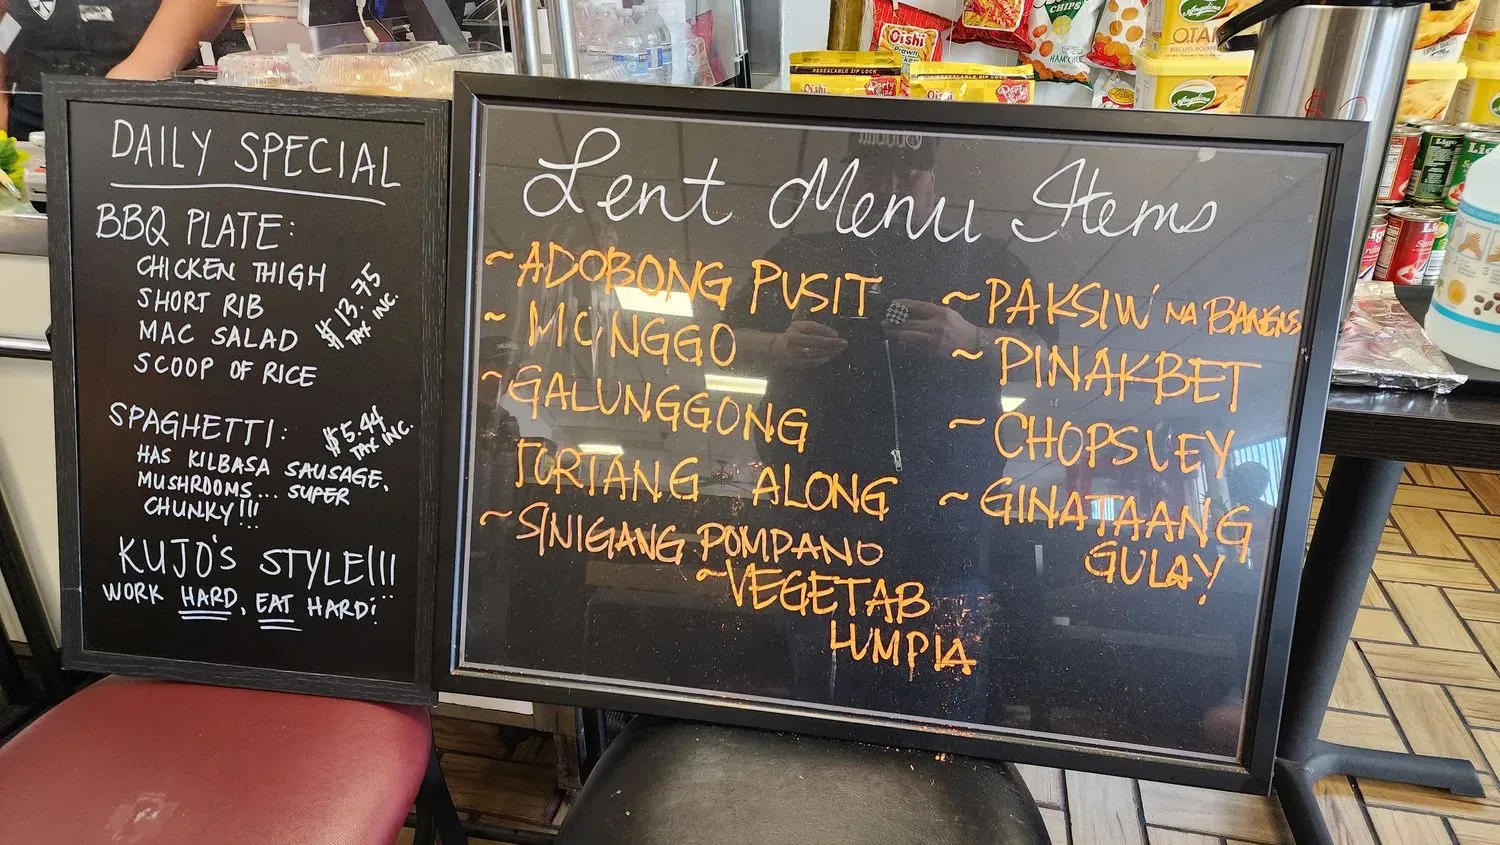 DAILY SPECIAL
BBQ PLATE:
CHICKEN THIGH
SHORT RIB
MAC SALAD
SCOOP OF RICE
$13.75
TAX INC.
SPAGHETTI:
$5.44
TAX INC.
HAS KILBASA SAUSAGE,
MUSHROOMS... SUPER
CHUNKY!!!
KUJO'S STYLE!!!
WORK HARD, EAT HARD!
Lent Menu Items
~ADOBONG PUSIT
~MONGGO
~GALUNGGONG
TORTANG ALONG
~SINIGANG POMPANO
~VEGETAB
LUMPIA
~PAKSIW NA BANGUS
~PINAKBET
~CHOPSUEY
~GINATAANG
GULAY
Oishi
Prawn
CHIPS
RESEALABLE ZIP LOCK
Oishi
Oishi
Angelina
Angelina
OTA
Ligo
Ligo